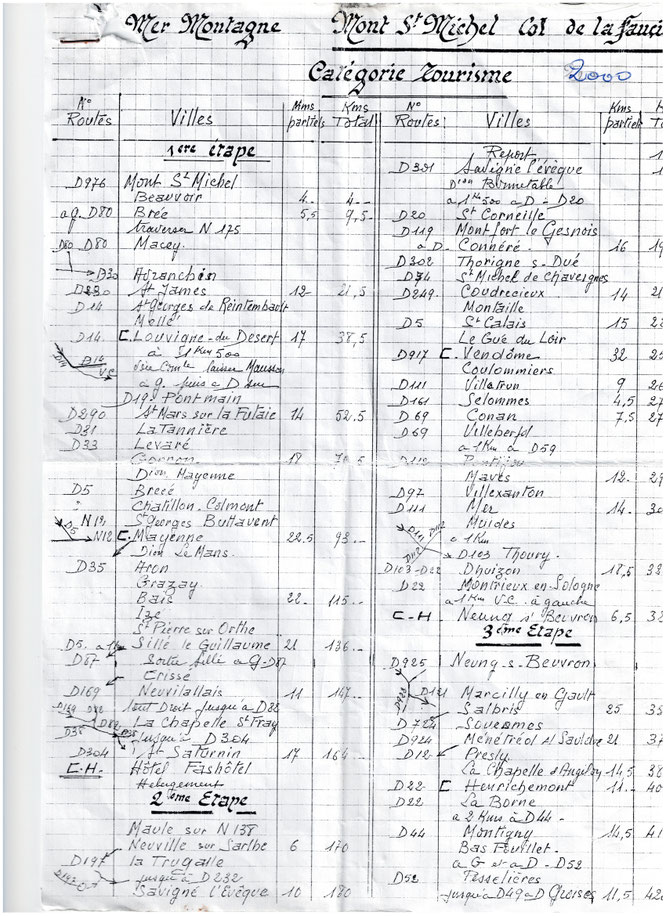 Mer Montagne Mont St Michel Col de la Fauci
Catégorie Tourisme 2000
N° Routes Villes Kms partiels Kms Total
1ère étape
D976 Mont St Michel
Beauvoir 4 4
a g. D80 Brée 5,5 9,5
traverser N 175
D80 D80 Macey
D30 Avranches
D230 St James 12 21,5
D14 St Georges de Reintembault
Mellé
D14 C. Louvigné-du Désert 17 38,5
à 51Km500
D14 D14 V.C
a g. puis a D sur
D19 Pontmain
D290 St Mars sur la Futaie 14 52.5
D31 La Tannière
D33 Levaré
Gorron 18 70,5
Dion Mayenne
D5 Brecé
Chatillon-Colmont
N12 St Georges Buttavent
D5 N12 C. Mayenne 22.5 93
Dion Le Mans
D35 Aron
Grazay
Bais 22 115
Izé
St Pierre sur Orthe
D5. Sillé le Guillaume 21 136
D87 Sortie Sillé a G-D87
Crisse
D169 Neuvilallais 11 147
Tout Droit Jusqu'à D38
La Chapelle St Fray
D38 Jusqu'à D304
D304 St Saturnin 17 164
C.H. Hôtel Fashôtel
Hébergement
2ème Etape
Maule sur N138
Neuville sur Sarthe 6 170
D197 la Trugalle
jusqu'à D232
Savigné L'Evêque 10 180
N° Routes Villes Kms partiels
Report
D301 Savigné l'évêque
Dion Bonnetable
a 1Km500 a D - D20
D20 St Corneille
D119 Montfort le Gesnois
a D. Connéré 16
D302 Thorigné s. Dué
D34 St Michel de Chavaignes
D249. Coudrecieux 14
Montaille
D5 St Calais 15
Le Gué du Loir
D917 C. Vendôme 32
Coulommiers
D111 Villatrun 9
D161 Selommes 4,5
D69 Conan 7,5
D69 Villeberfol
a 1Km a D59
Maves 12
D97 Villexanton
D111 Mer 14
Muides
D111 D112 a 1Km
D112 D103 Thoury
D103-D22 Dhuizon 18,5
D22 Montrieux-en-Sologne
a 1Km V.C. à gauche
C-H Neung s/ Beuvron 6,5
3ème Etape
D925 Neung-s-Beuvron
D923 D121 Marcilly en Gault
Salbris 25
D724 Souesmes
D924 Ménétréol s/ Sauldre 21
D12 Presly
La Chapelle d'Angillon 14,5
D22 C Henrichemont 11
D22 La Borne
a 2 Kms à D44
D44 Montigny 14,5
Bas Feuillet
a G et a D - D52
D52 Tesselières
jusqu'à D49 a D Groises 11,5